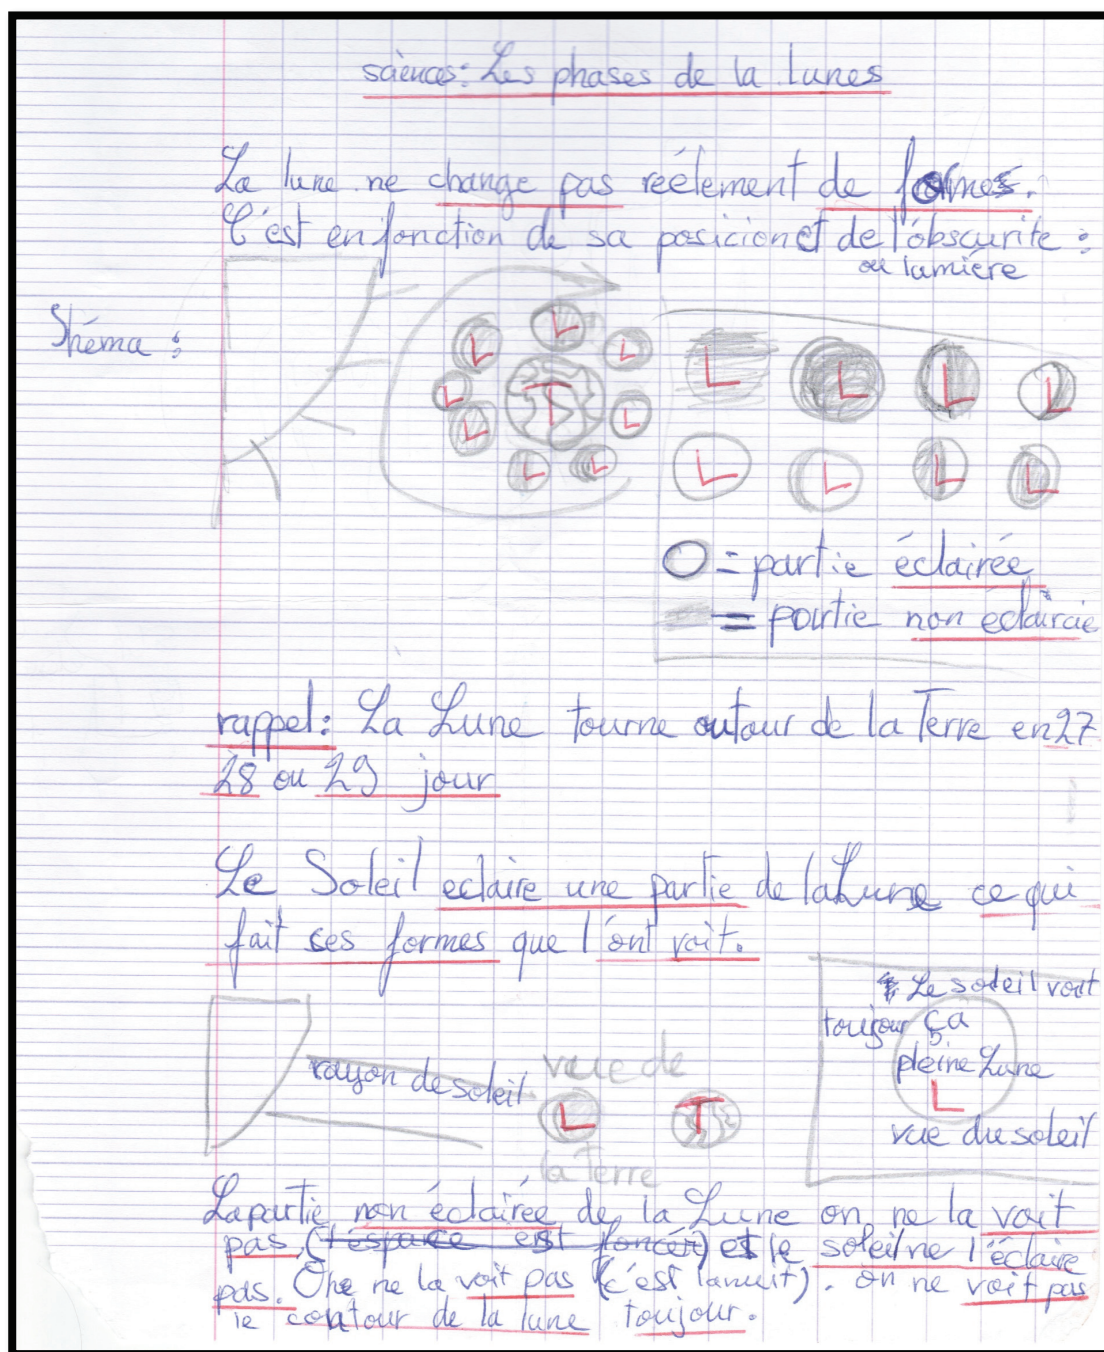 sciences: Les phases de la lunes
La lune ne change pas réelement de formes.
C'est en fonction de sa posicion et de l'obscurite :
ou lumière
Shéma :
L L L L L L L L T
L L L L
L L L L
= partie éclairée
= partie non eclaircie
rappel: La Lune tourne autour de la Terre en 27
28 ou 29 jour
Le Soleil eclaire une partie de la Lune ce qui
fait ses formes que l'ont voit.
Le soleil voit
toujour ça
pleine Lune
L
vue du soleil
rayon de soleil
vue de
L T
la Terre
La partie non éclairée de la Lune on ne la voit
pas, (l'espace est foncer) et le soleil ne l'éclaire
pas. One ne la voit pas (c'est la nuit). on ne voit pas
le contour de la lune toujour.